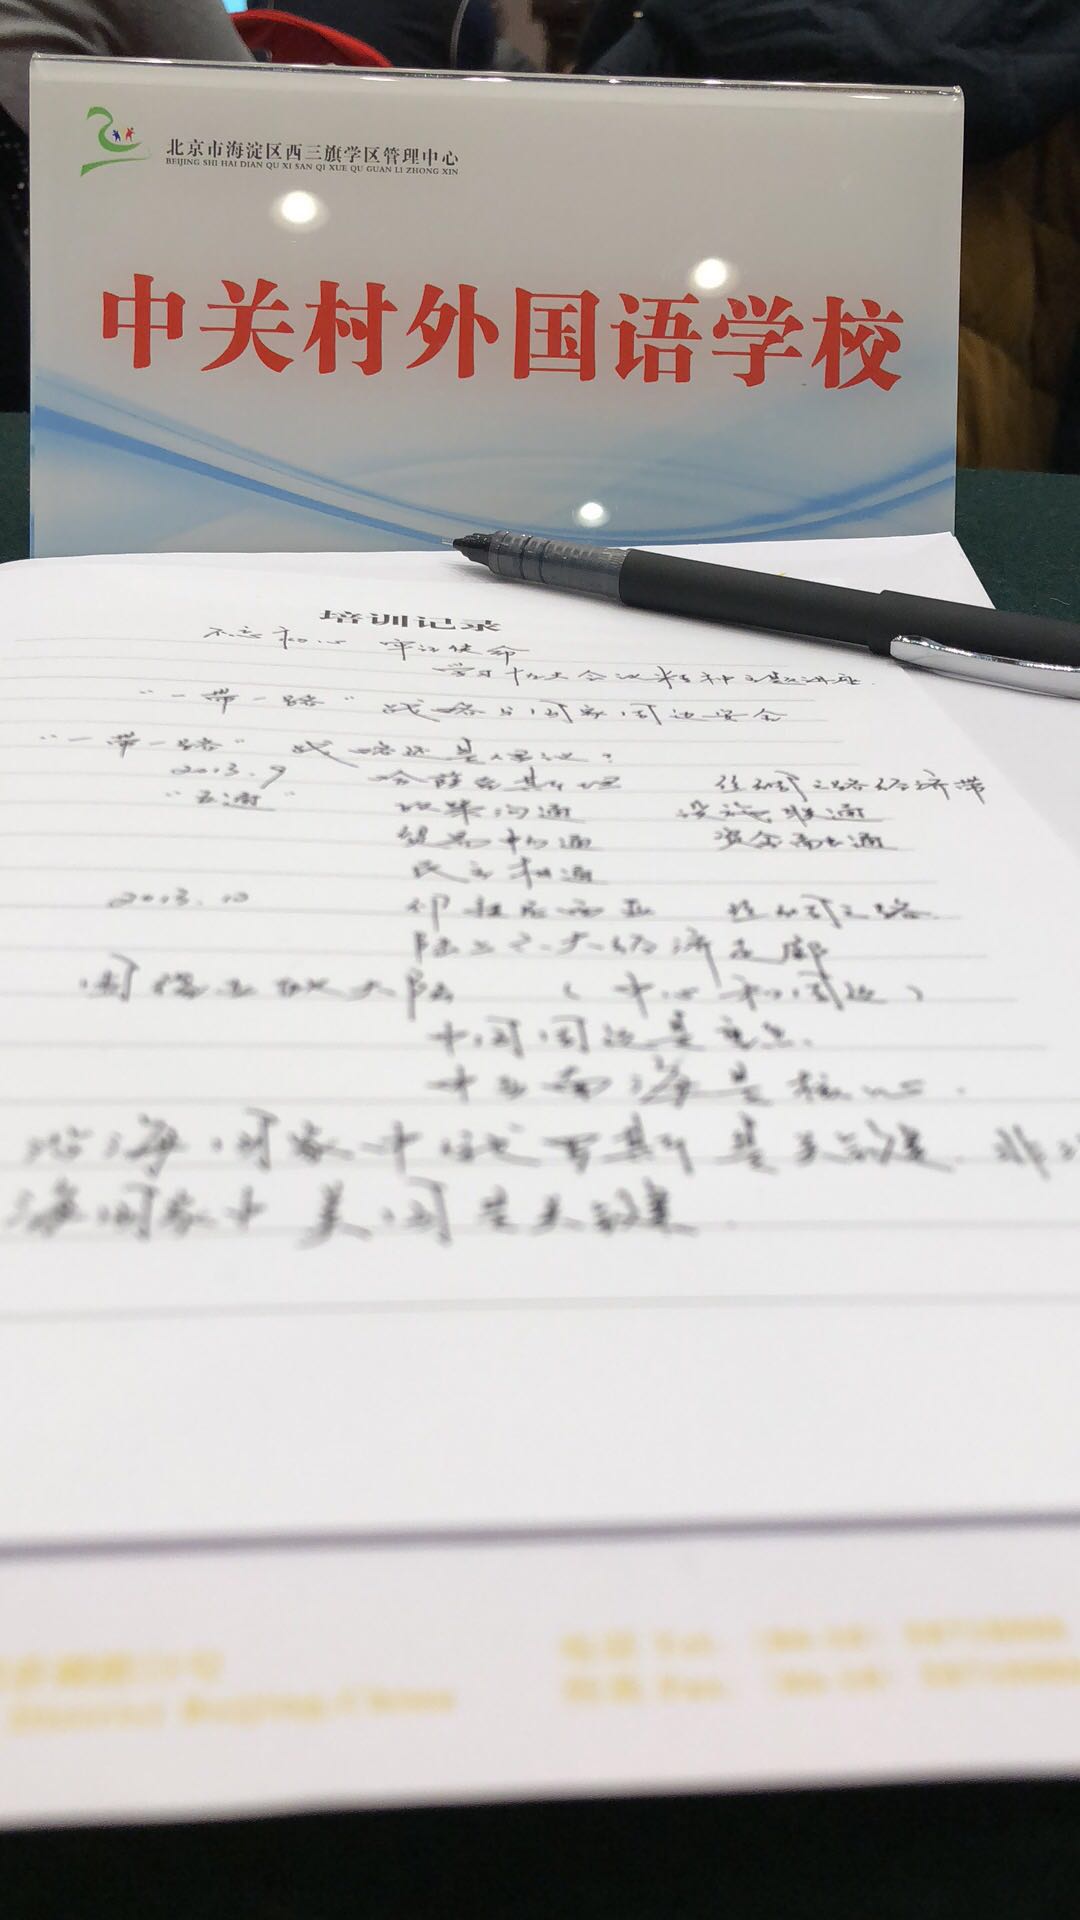 北京市海淀区西三旗学区管理中心
BEIJING SHI HAI DIAN QU XI SAN QI XUE QU GUAN LI ZHONG XIN
中关村外国语学校
培训记录
不忘初心 牢记使命
学习十九大会议精神主题讲座
"一带一路"战略与国家周边安全
"一带一路"战略还是倡议?
2013.9 哈萨克斯坦 丝绸之路经济带
"五通" 政策沟通 设施联通
贸易畅通 资金融通
民心相通
2013.10 印度尼西亚 丝绸之路
陆上六大经济走廊
大陆 (中心和周边)
中国周边是重点.
南海是核心.
沿海国家中 是关键. 非沿
海国家中美国是关键.